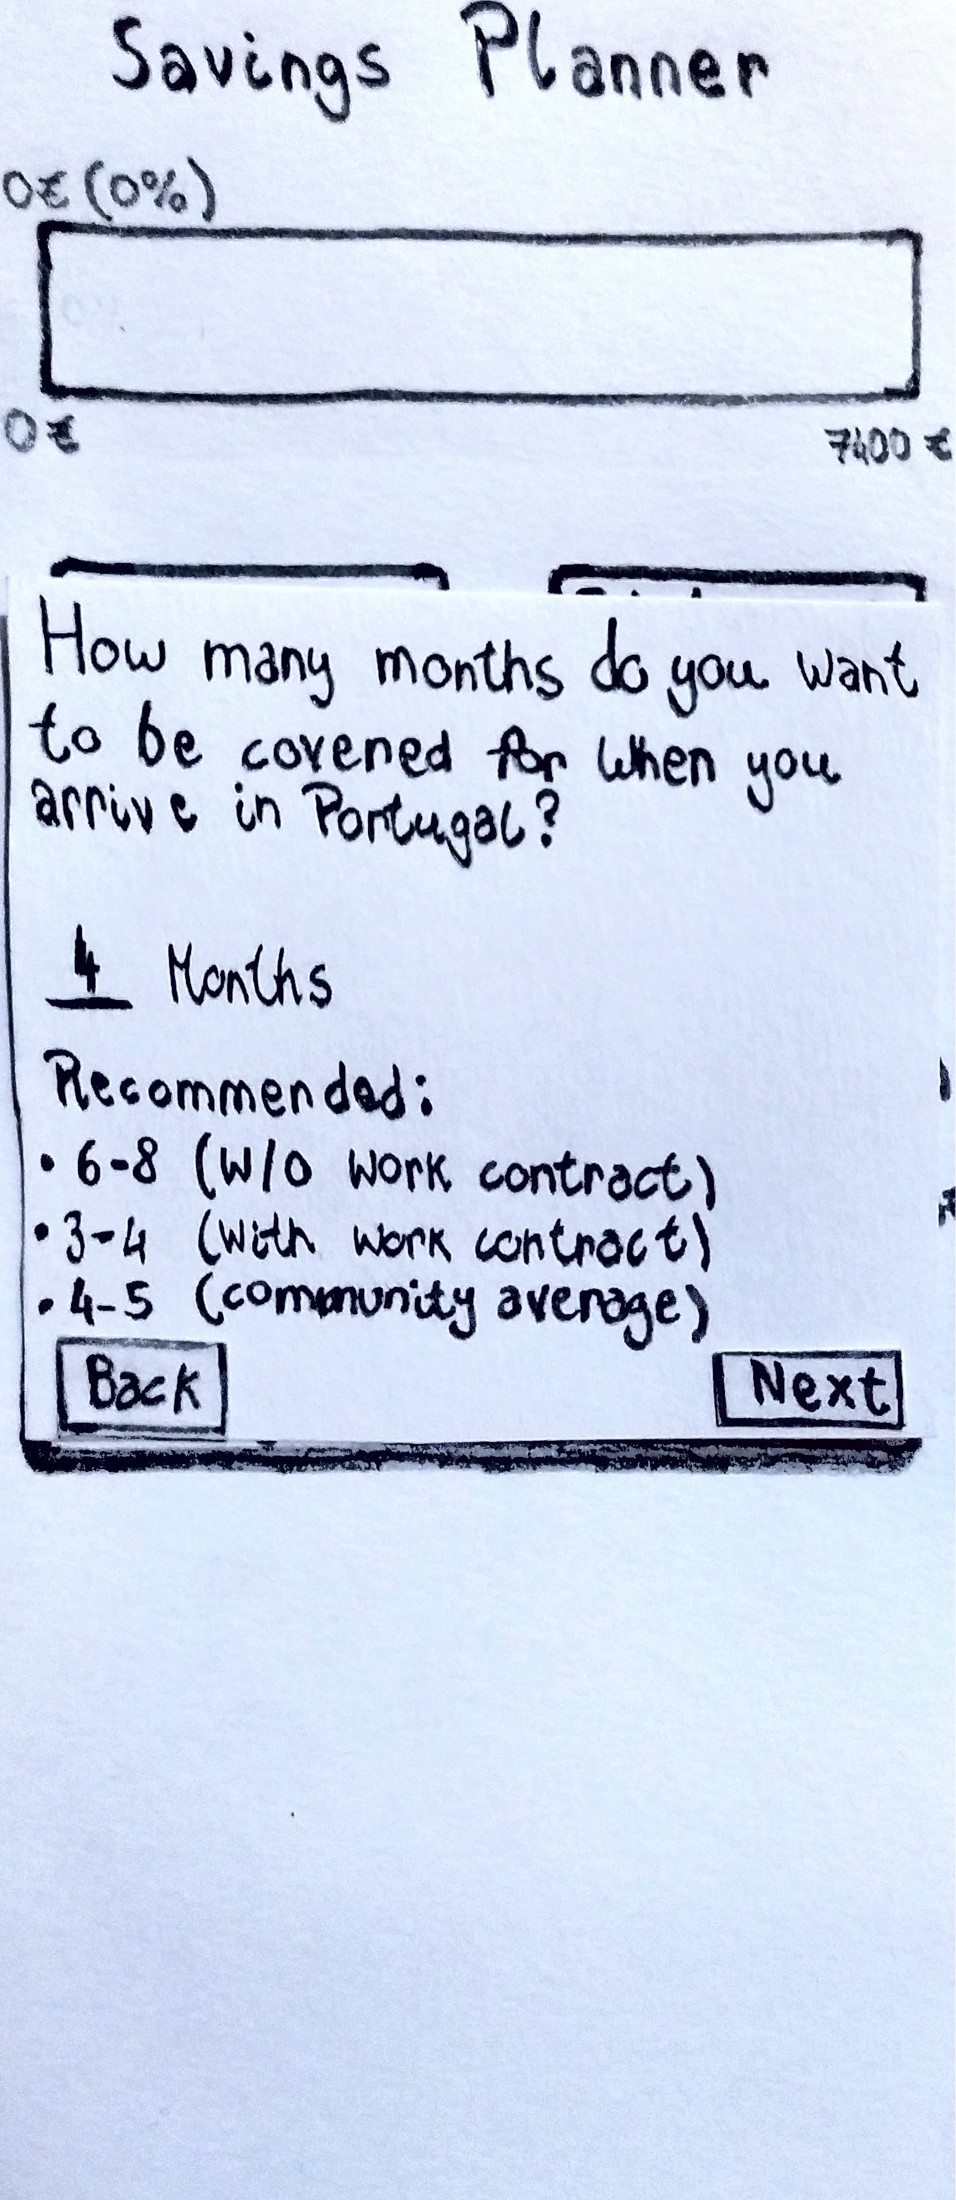 Savings Planner
0€ (0%)
0€
7400 €
How many months do you want
to be covered for when you
arrive in Portugal?
4 Months
Recommended:
• 6-8 (w/o work contract)
• 3-4 (with work contract)
• 4-5 (community average)
Back
Next